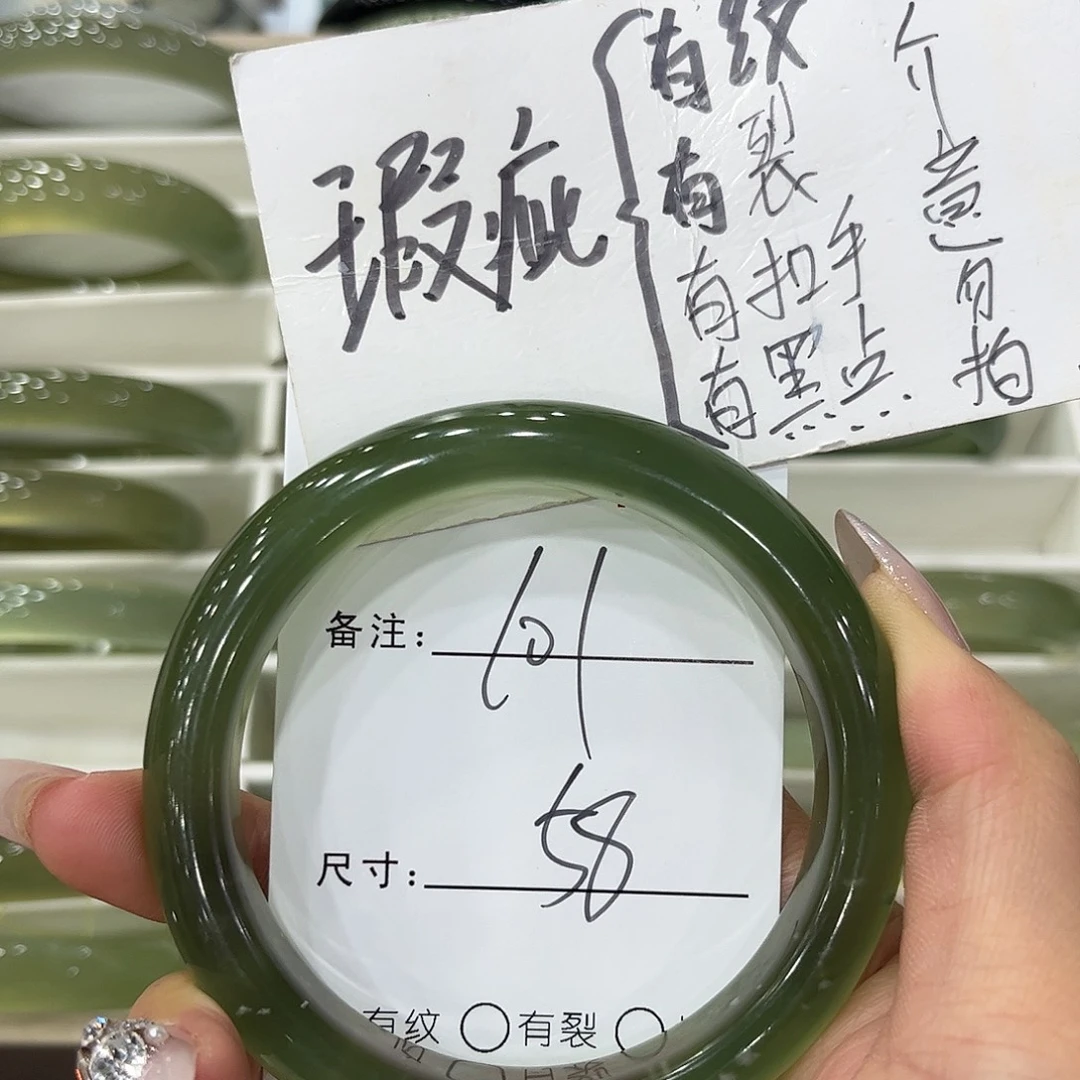 瑕疵
有纹
有裂
有扣手
有黑点
介意勿拍
备注: 101
尺寸: 58
有纹 ○ 有裂 ○